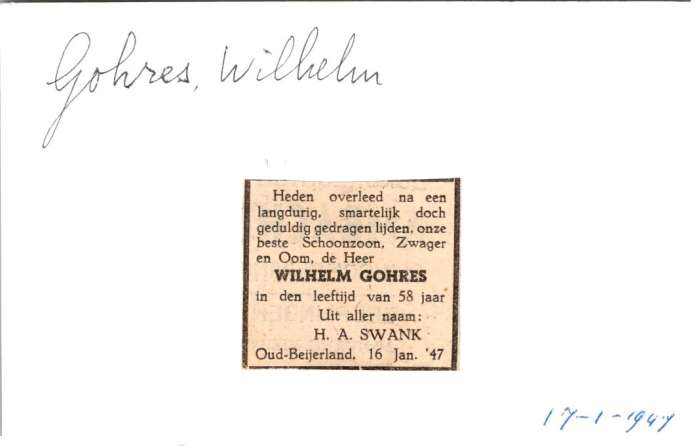 Gohres, Wilhelm
Heden overleed na een
langdurig, smartelijk doch
geduldig gedragen lijden, onze
beste Schoonzoon, Zwager
en Oom, de Heer
WILHELM GOHRES
in den leeftijd van 58 jaar
Uit aller naam:
H. A. SWANK
Oud-Beijerland, 16 Jan. '47
17-1-1947